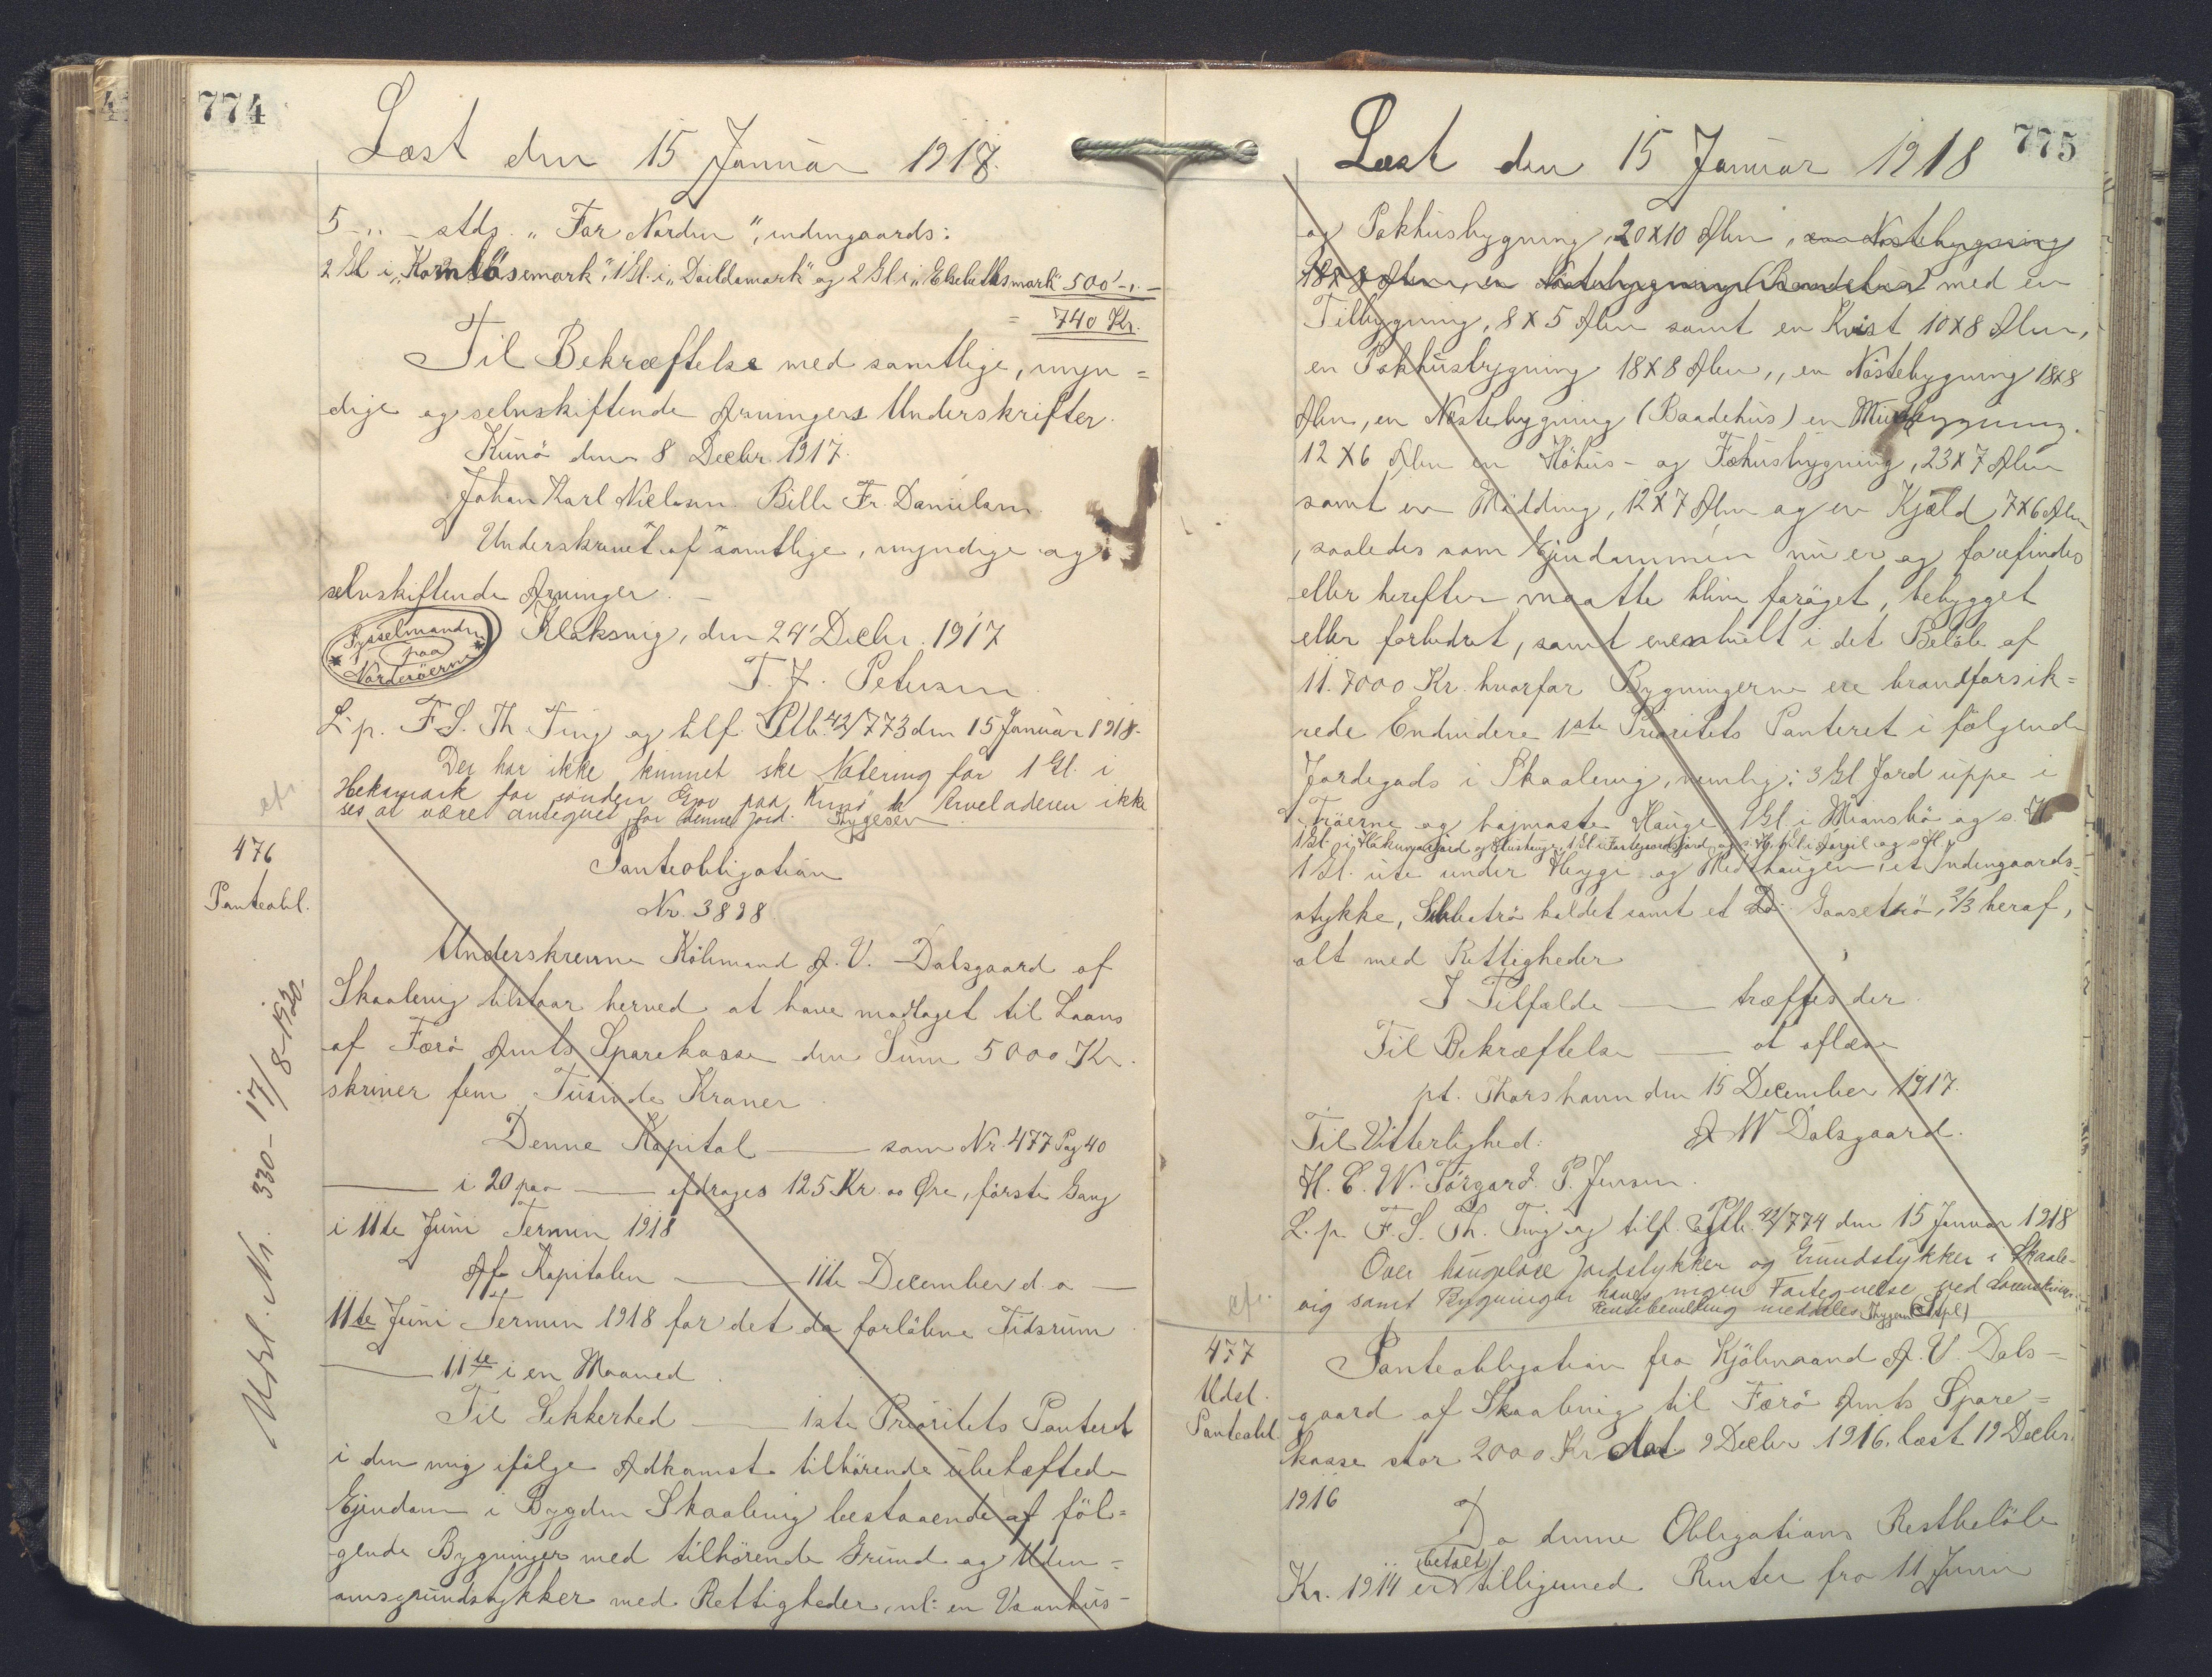 774
Læst den 15 Januar 1918.
5 - " - stds. "Før Norden", indengaards:
2 Gl i "Kornløsemark", 1 Gl. i "Daildamark" og 2 Gl i "Elsebethsmark" 500 - " -
= 740 Kr.
Til Bekræftelse med samtlige, myn=
dige og selvskiftende Arvingers Underskrifter.
Kunö den 8 Decbr 1917.
Johan Karl Nielsen. Bille Fr. Danielsen.
Underskrevet af samtlige, myndige og
selvskiftende Arvinger. -
Sysselmanden paa Norderöerne
Klaksvig, den 24' Decbr. 1917
T. J. Petersen
L. p. F. S. Th Ting og tilf. Ptb. 42/773 den 15 Januar 1918.
Der har ikke kunnet ske Notering for 1 Gl. i
Heksmark for sönden Gjov paa Kunö da Arveladeren ikke
ses at være antegnet for denne Jord. Thygesen
afs.
476
Panteobl.
Panteobligation
Nr. 3898
Underskrevne Köbmand A. V. Dalsgaard af
Skaalevig tilstaar herved at have modtaget til Laans
af Færö Amts Sparekasse den Sum 5000 Kr.
skriver fem Tusinde Kroner.
Denne Kapital — som Nr. 477 Pag 40
— i 20 paa — afdrages 125 Kr. 00 Øre, förste Gang
i 11te Juni Termin 1918
Af Kapitalen — 11te December d. a —
11te Juni Termin 1918 for det da forløbne Tidsrum
— 11te i en Maaned.
Til Sikkerhed — 1ste Prioritets Panteret
i den mig ifölge Adkomst tilhörende ubehæftede
Ejendom i Bygden Skaalevig bestaaende af föl=
gende Bygninger med tilhörende Grund og Uden=
omsgrundstykker med Rettigheder, nl: en Vaanhus-
Udsl. Nr. 330 - 17/8 - 1920.
775
Læst den 15 Januar 1918
og Pakhusbygning, 20 X 10 Alen, en Nöstebygning
18 X 8 Alen, en Nöstebygning (Baadehus) med en
Tilbygning, 8 X 5 Alen samt en Kvist 10 X 8 Alen,
en Pakhusbygning 18 X 8 Alen,, en Nöstebygning 18 X 8
Alen, en Nöstebygning (Baadehus) en Murbygning.
12 X 6 Alen en Höhus- og Fæhusbygning, 23 X 7 Alen
samt en Mödding, 12 X 7 Alen og en Kjæld 7 X 6 Alen
, saaledes som Ejendommen nu er og forefindes
eller herefter maatte blive forøget, bebygget
eller forbedret, samt eventuelt i det Belöb af
11.7000 Kr. hvorfor Bygningerne ere brandforsik=
rede Endvidere 1ste Prioritets Panteret i fölgende
Jordegods i Skaalevig, nemlig: 3 Gl Jord uppe i
Tröerne og hajmaste Hauge 1 Gl. i Mianströ og s. H
1 Gl. i Hakunargærd og Hustrugr., 1 Gl i Fartegaardsjord og s. H. 1 Gl. i Aargil og s H.
1 Gl. ute under Heyge og Midthaugen, et Indengaards-
stykke, Sebbatrö kaldet samt et Do. Gaasetrö, 2/3 heraf,
alt med Rettigheder
I Tilfælde — træffes der.
Til Bekræftelse — at aflæse
pt. Thorshavn den 15 December 1917.
Til Vitterlighed: A W Dalsgaard.
H. C. W. Tórgard. P. Jensen.
L. p. F. S. Th. Ting og tilf. Ptb. 42/774 den 15 Januar 1918
Over haugeløse Jordstykker og Grundstykker i Skaale-
vig samt Bygninger haves ingen Fortegnelse ved Sorenskriver.
Rentebevilling meddeles Thygesen (Stpl)
afs.
477
Udsl.
Panteobl.
Panteobligation fra Kjöbmand A. V. Dals-
gaard af Skaalevig til Færö Amts Spare=
kasse stor 2000 Kr dat. 9 Decbr 1916. læst 19 Decbr.
1916
Da denne Obligations Restbelöb
Kr. 1914 er betalt tilligemed Renter fra 11 Juni